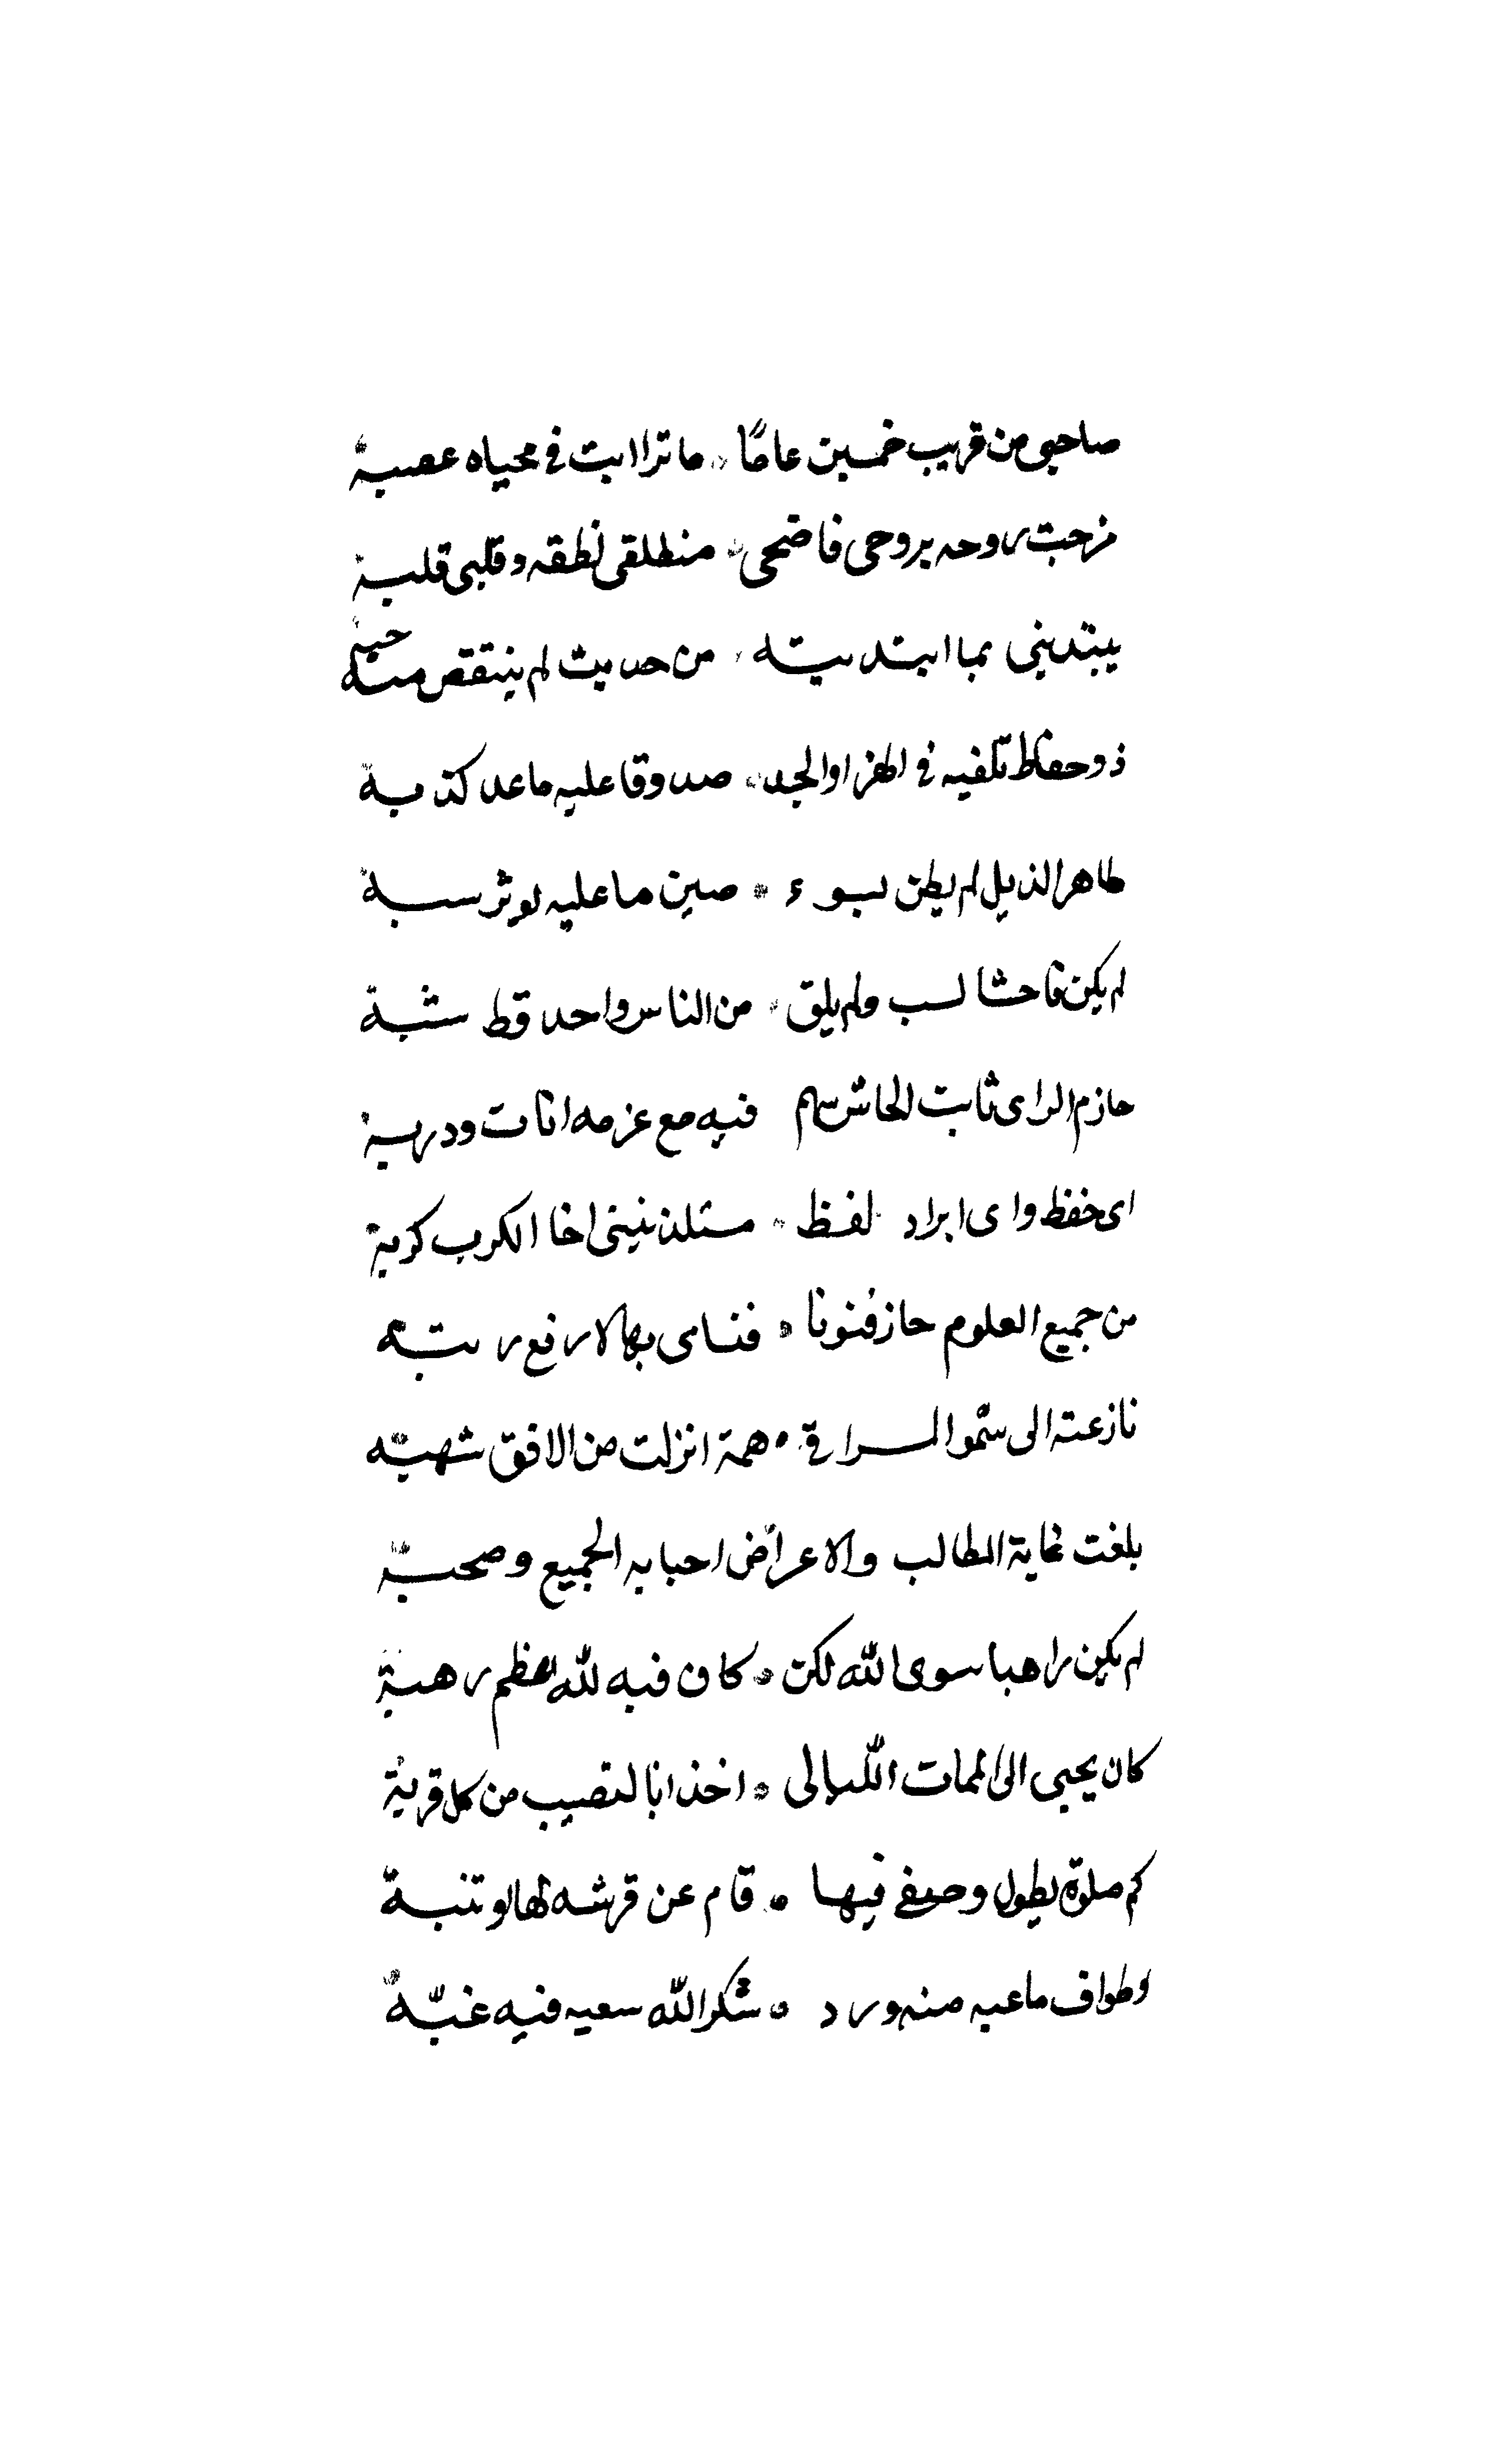 صاحبي من قريب خمسين عامًا ۞ ما ترا ابت في محياه عصبة
مزجت روحه بروحي فاضحى ۞ منطلقي نطقه وقلبي قلبه
يبتديني بما ابتديته ۞ من حديث لم ينتقص منه حبه
ذو حفاظ تلفيه في الهزل والجد ۞ صدوقا عليه ما عد كذبة
طاهر الذيل لم يظن بسوء ۞ صين ما عليه يوثر سبة
لم يكن فاحشا لسب ولم يلق ۞ من الناس واحد قط شبة
حازم الراى ثابت الجاش سهم فيه مع عزمه انات ودربة
اى حفظ واى ايراد لفظ ۞ اخا الكرب كربة
من جميع العلوم حاز فنونا ۞ فتسامى بها لارفع رتبه
نازعته الى سمو المراقي ۞ همة انزلت من الافق شهبه
بلغت غاية المطالب والاعراض احبابه الجميع وصحبه
لم يكن راهبا سوى الله لكن ۞ كان فيه لله اعظم رهبة
كان يحيى الى الممات الليالي ۞ اخذا بالنصيب من كل قربة
كم صلوة يطول وصفي فيها ۞ قام عن فرشه لها لو تنبه
وطواف ما عيه منه ورد ۞ شكر الله سعيه فيه غبه